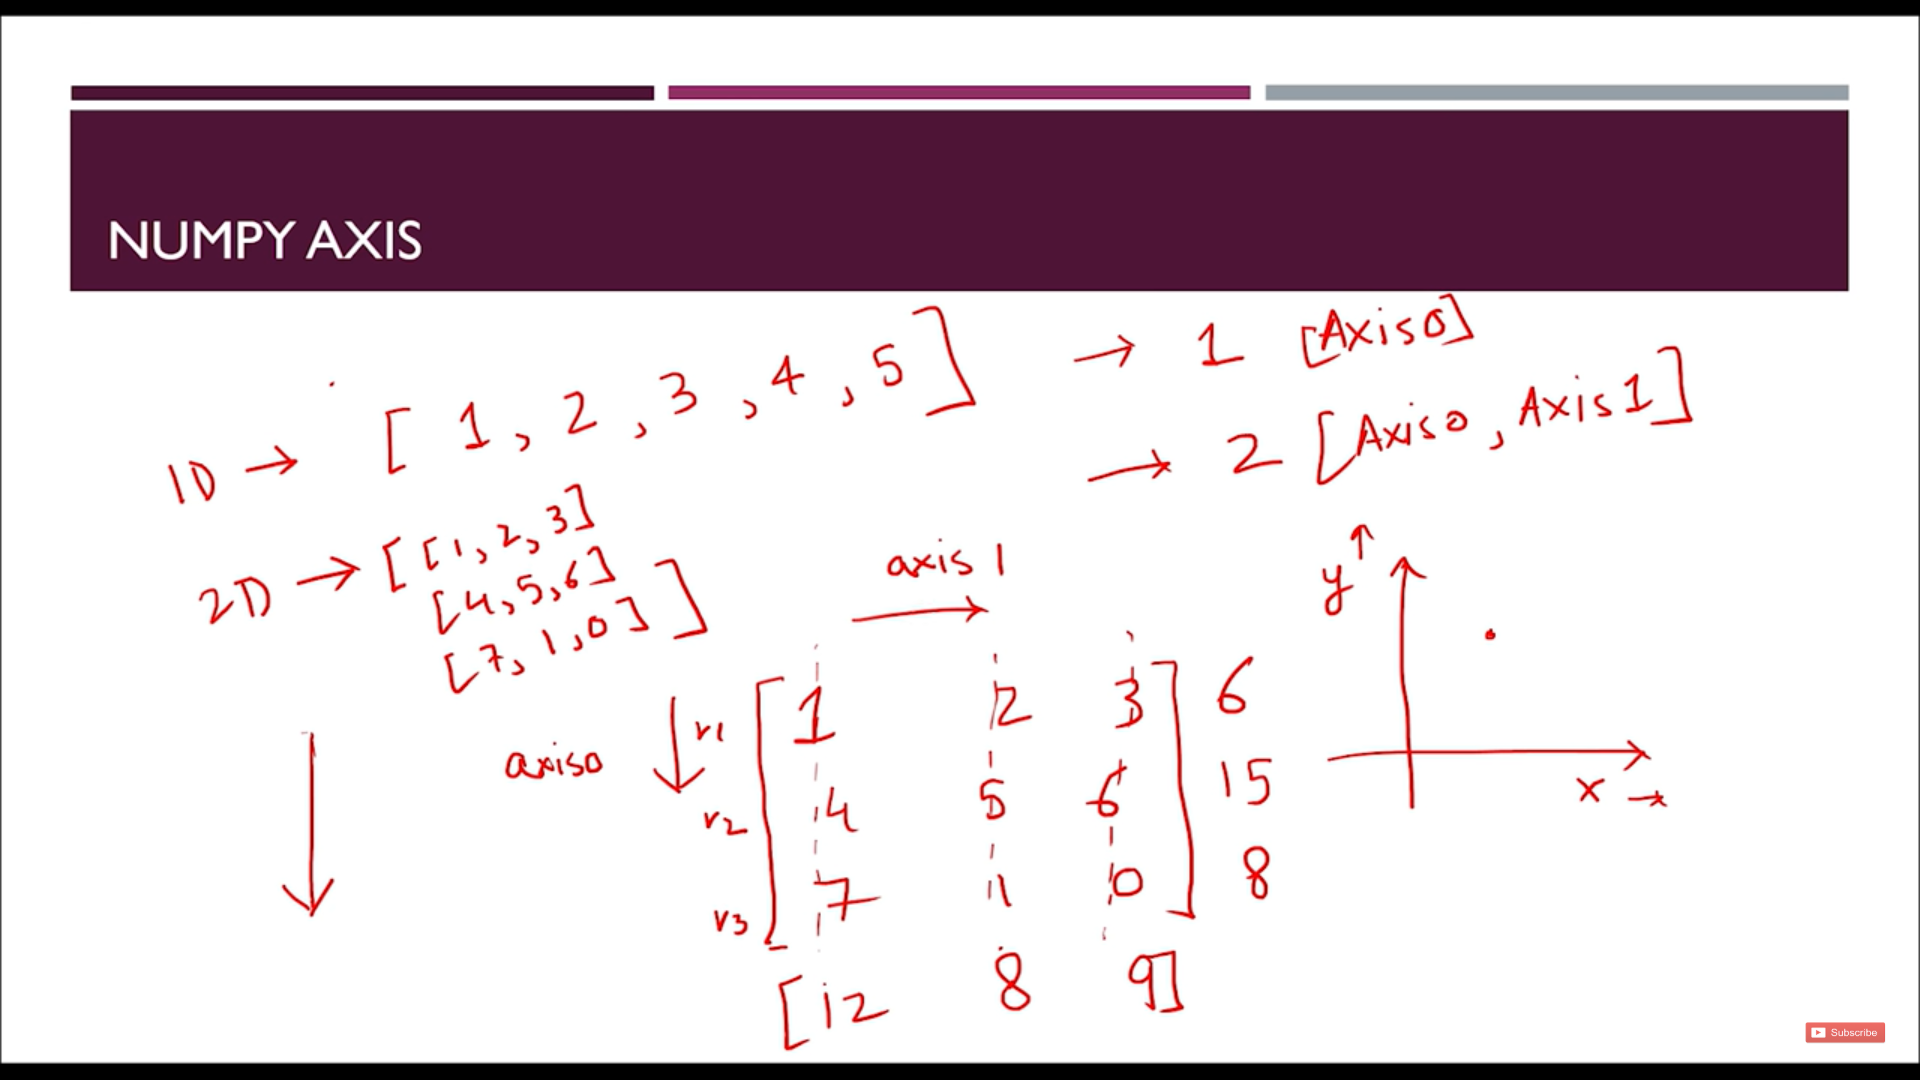 NUMPY AXIS
1D → [ 1, 2, 3, 4, 5 ] → 1 [Axis0]
→ 2 [Axis0, Axis1]
2D → [ [1, 2, 3]
[4, 5, 6]
[7, 1, 0] ]
axis 1
y ↑
axis0
r1 [ 1 2 3 ] 6
r2 4 5 6 15
x →
r3 7 1 0 8
[ 12 8 9 ]
Subscribe